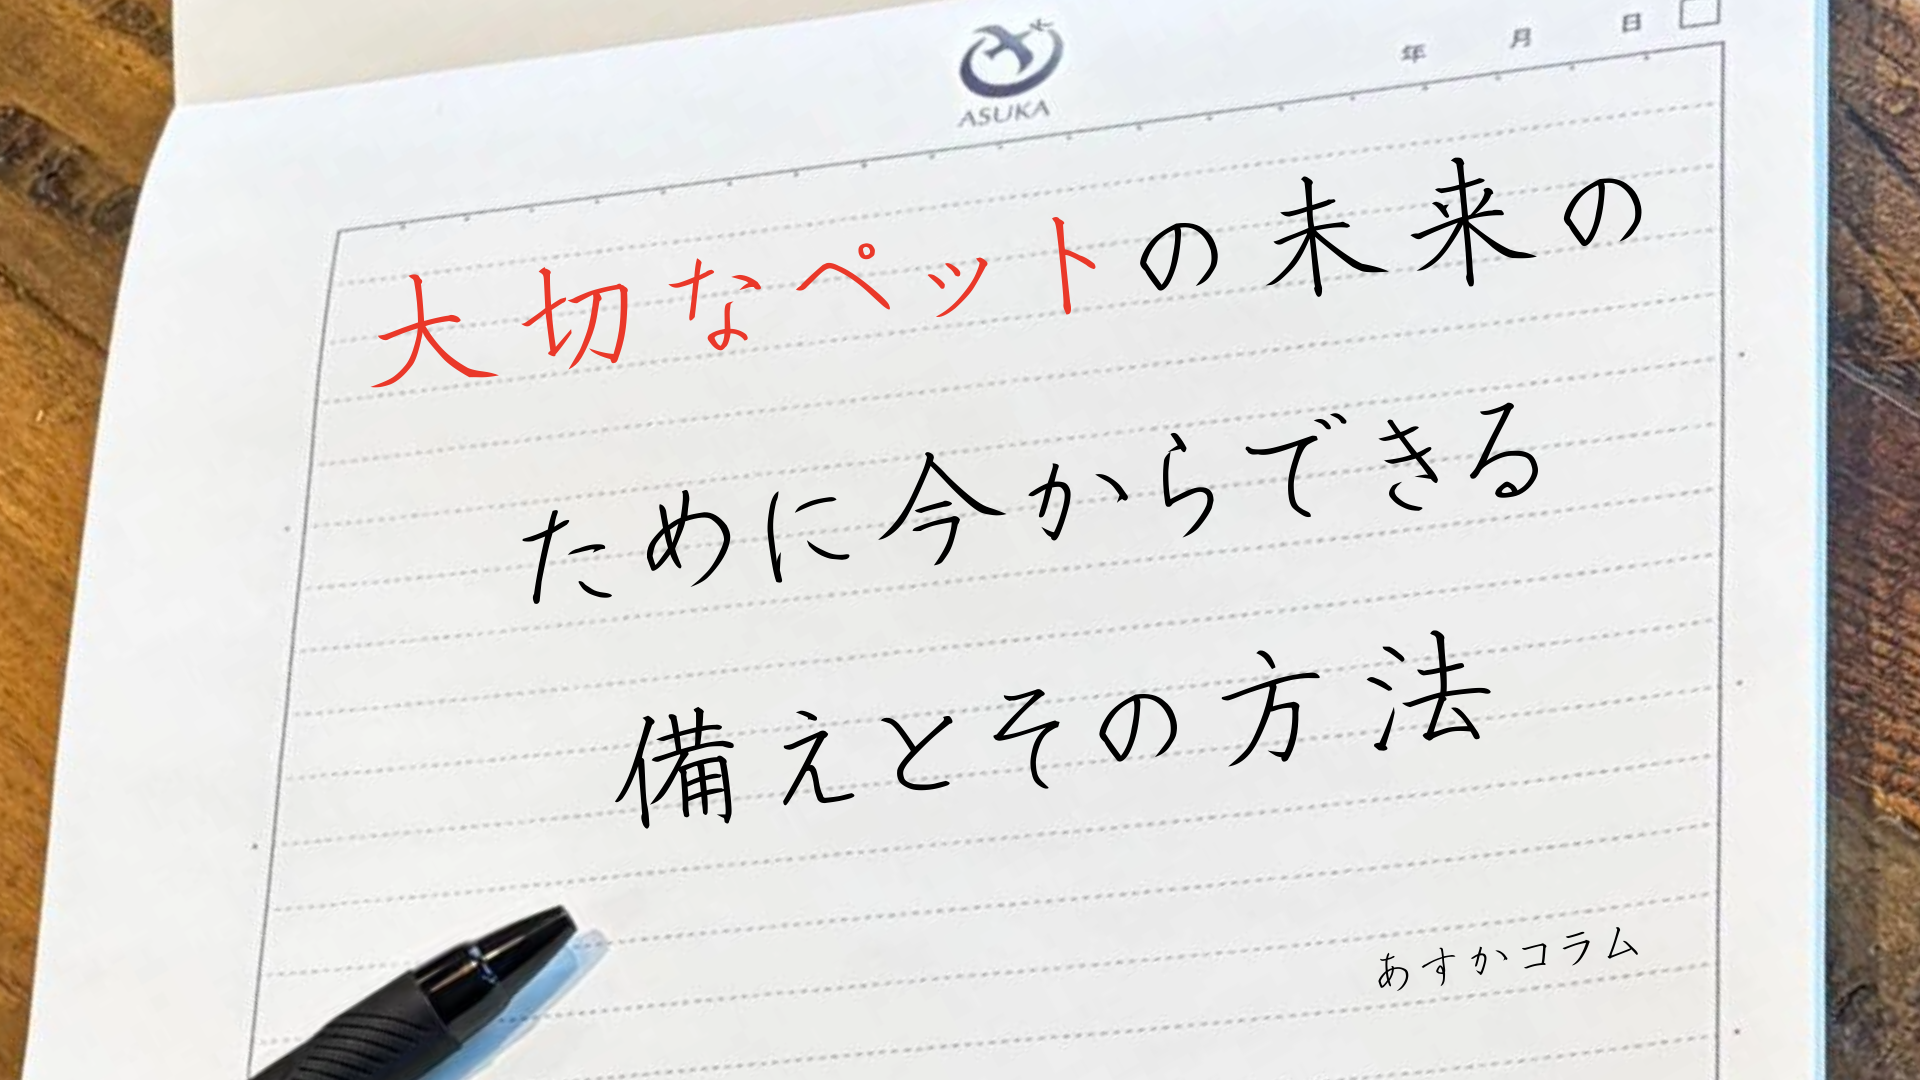 ASUKA
年 月 日
大切なペットの未来の
ために今からできる
備えとその方法
あすかコラム